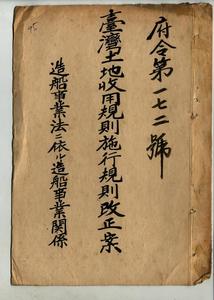 府令第一七二號
臺灣土地收用規則施行規則改正案
造船事業法ニ依ル造船事業関係